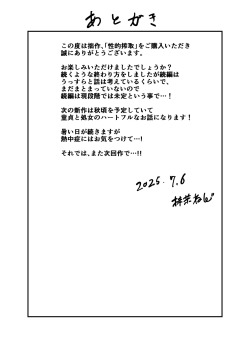 あとがき
この度は拙作、「性的搾取」をご購入いただき
誠にありがとうございます。
お楽しみいただけましたでしょうか?
続くような終わり方をしましたが続編は
うっすらと話は考えているくらいで、
まだまとまっていないので
続編は現段階では未定という事で…!
次の新作は秋頃を予定していて
童貞と処女のハートフルなお話になります!
暑い日が続きますが
熱中症にはお気をつけて…!
それでは、また次回作で…!!
2025.7.6